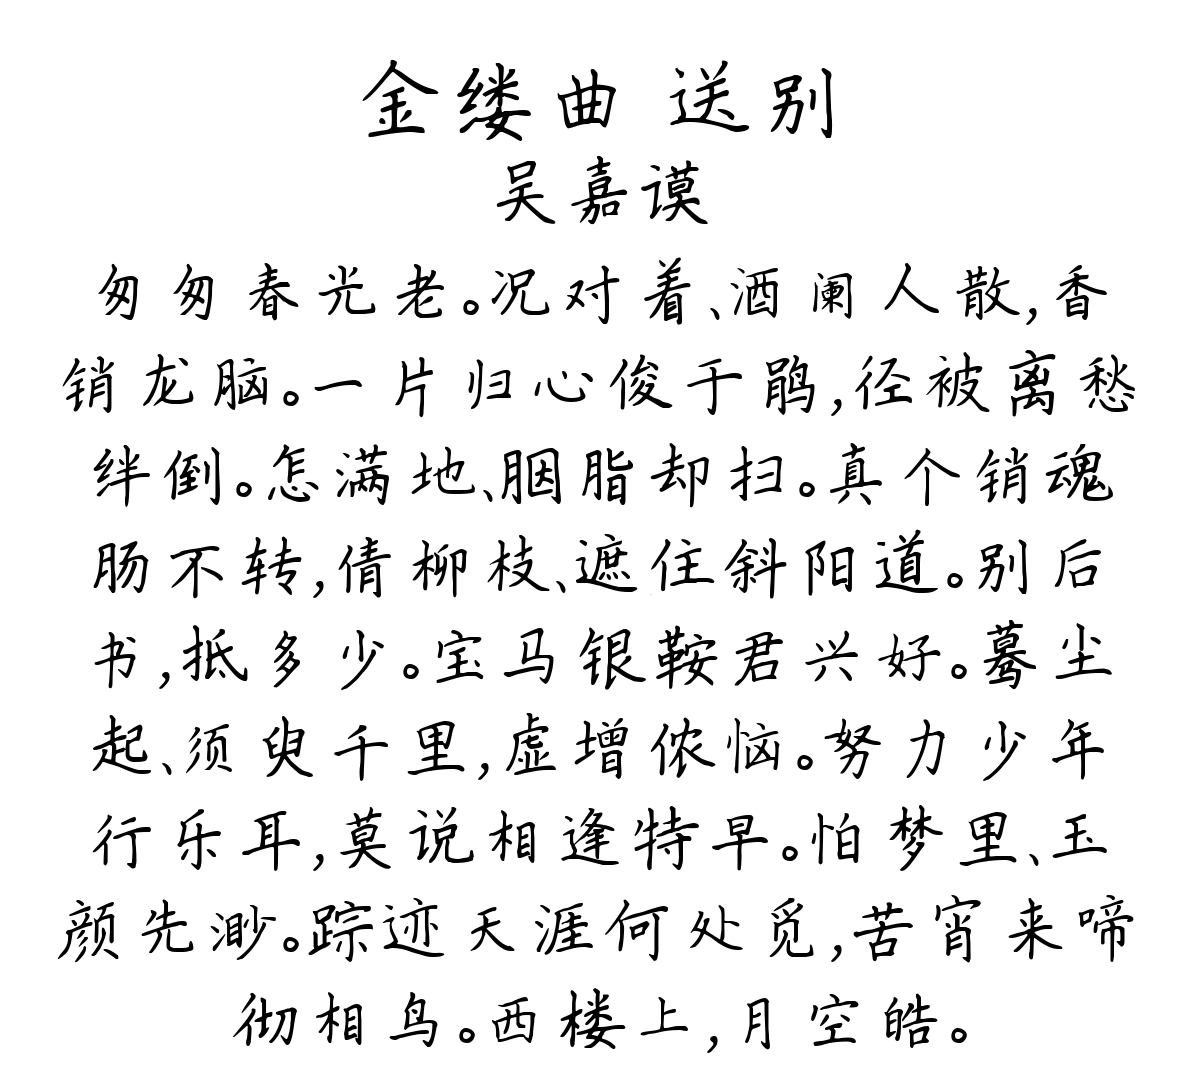 金缕曲 送别
吴嘉谟
匆匆春光老。况对着、酒阑人散,香
销龙脑。一片归心俊于鹃,径被离愁
绊倒。怎满地、胭脂却扫。真个销魂
肠不转,倩柳枝、遮住斜阳道。别后
书,抵多少。宝马银鞍君兴好。蓦尘
起、须臾千里,虚增侬恼。努力少年
行乐耳,莫说相逢特早。怕梦里、玉
颜先渺。踪迹天涯何处觅,苦宵来啼
彻相鸟。西楼上,月空皓。